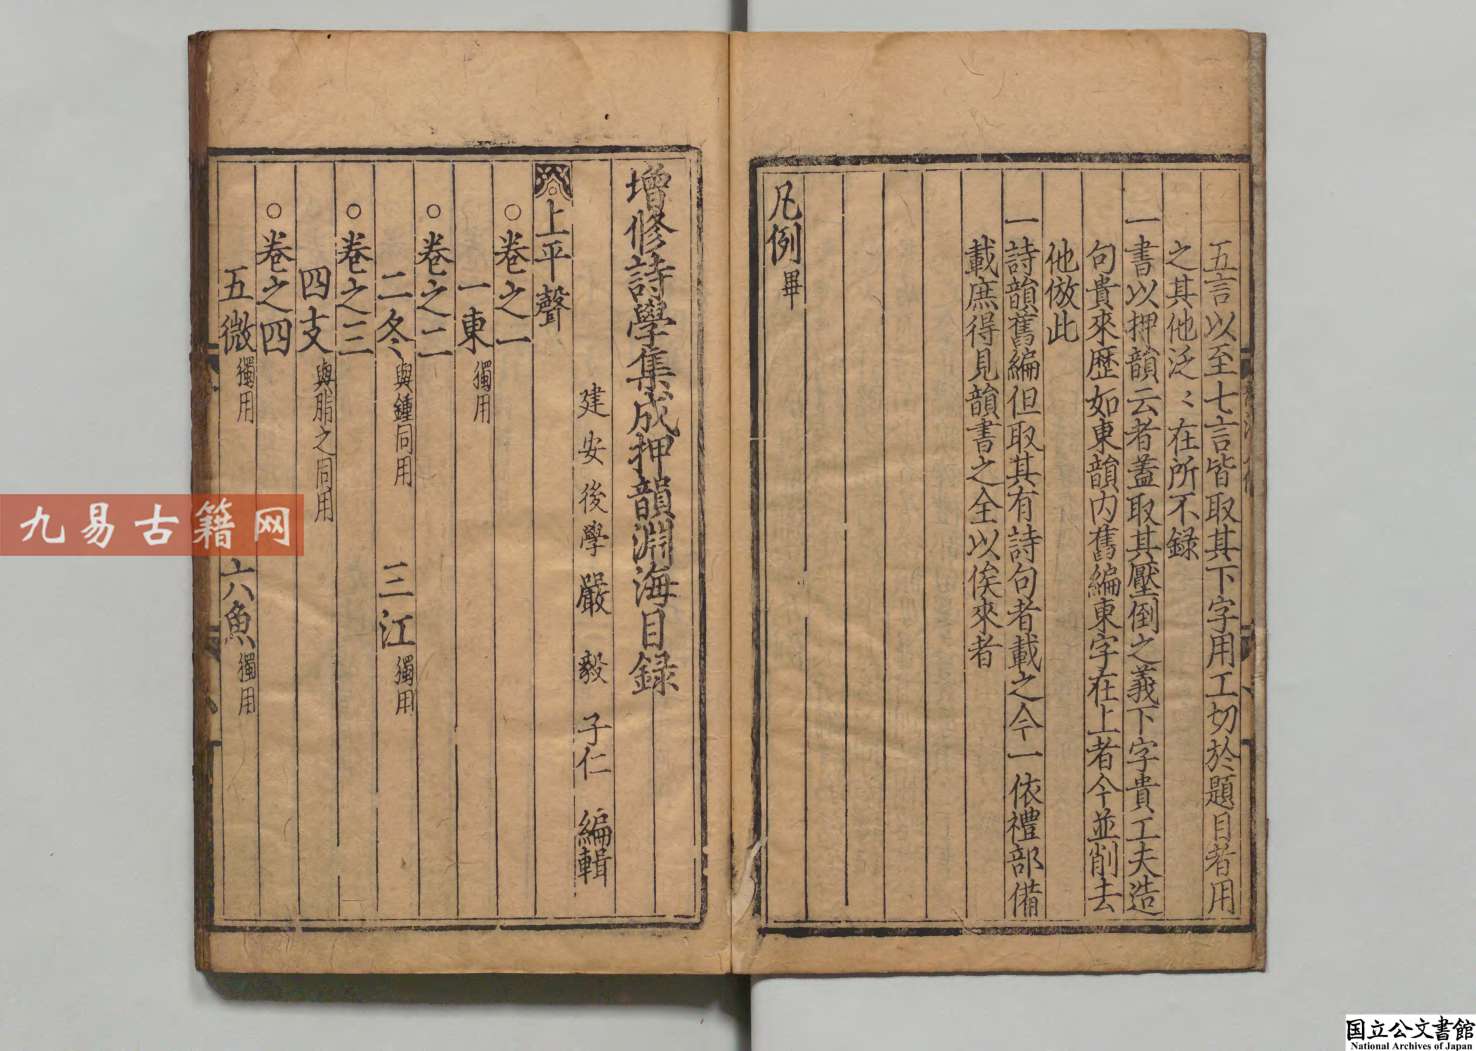 五言以至七言皆取其下字用工切於題目者用
之其他泛〻在所不錄
一書以押韻云者蓋取其壓倒之義下字貴工夫造
句貴來歷如東韻内舊編東字在上者今並削去
他倣此
一詩韻舊編但取其有詩句者載之今一依禮部備
載庶得見韻書之全以俟來者
凡例畢
增修詩學集成押韻淵海目録
建安後學嚴毅子仁編輯
上平聲
○卷之一
一東獨用
○卷之二
二冬與鍾同用 三江獨用
○卷之三
四支與脂之同用
○卷之四
五微獨用 六魚獨用
九易古籍网
国立公文書館
National Archives of Japan